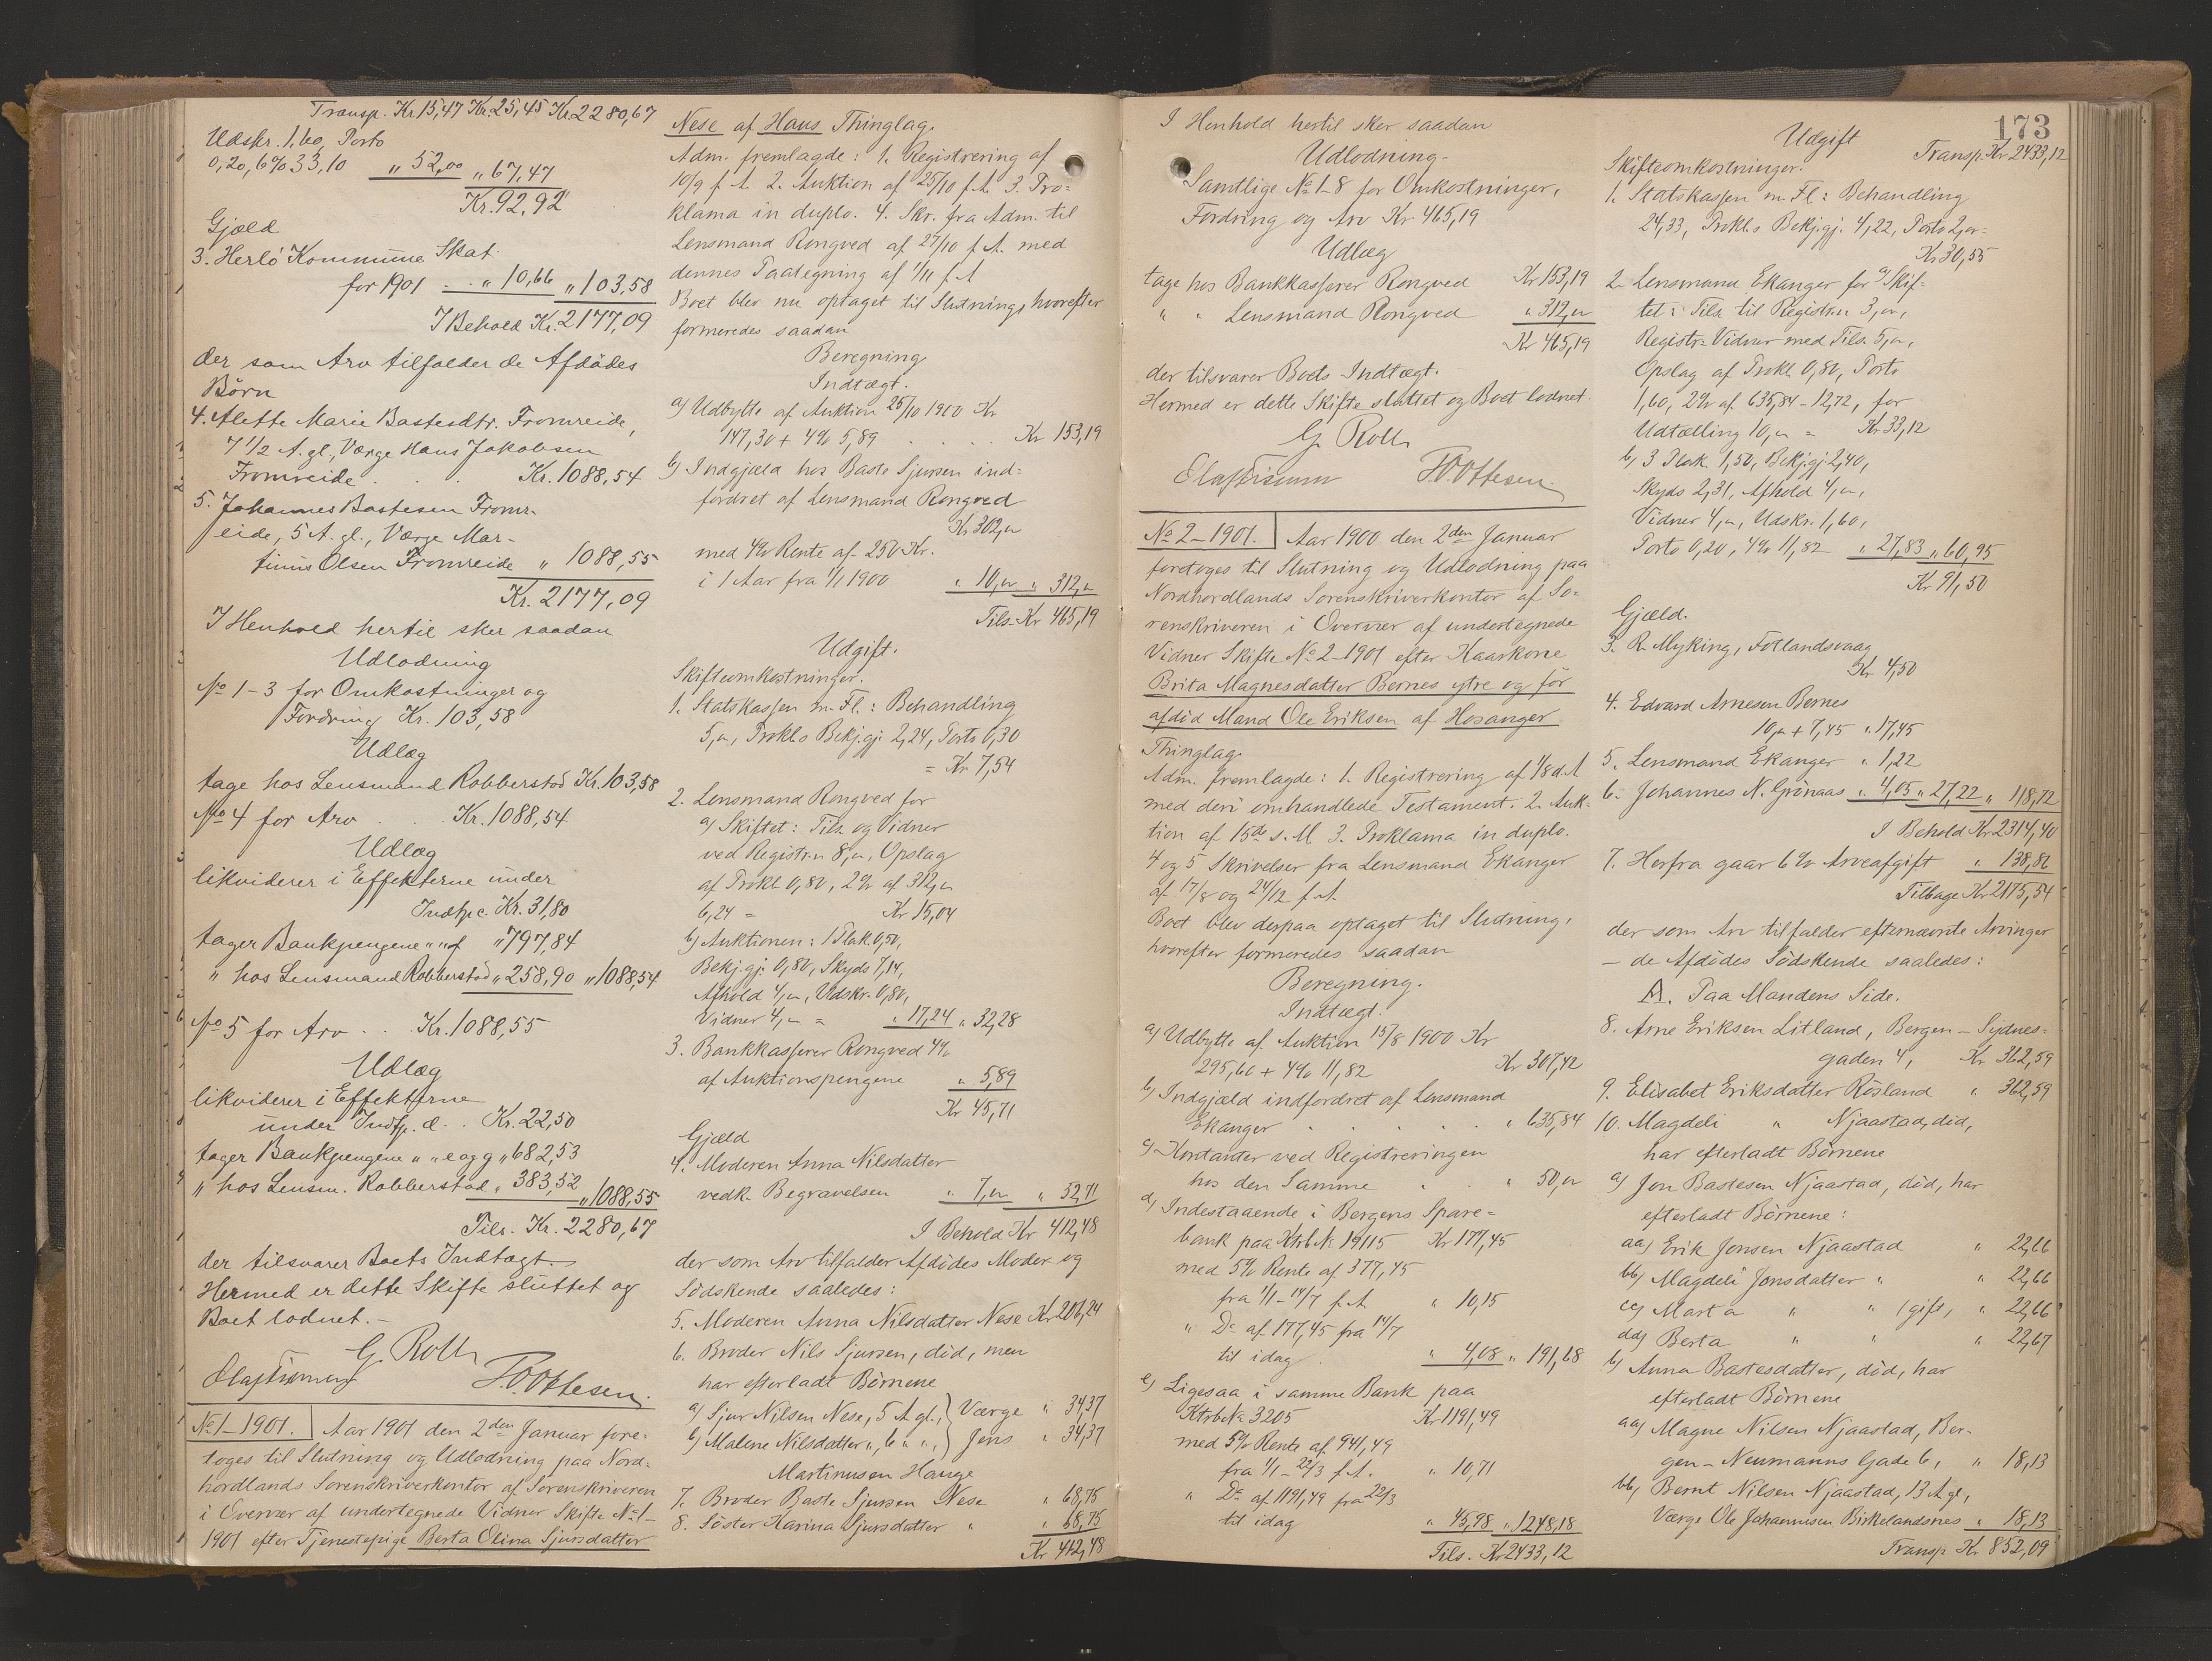 Transp. Kr 15,47 Kr 25,45 Kr 2280,67
Udskr. 1,60, Porto
0,20, 6% 33,10 " 52,00 " 67,47
Kr. 92,92
Gjæld
3. Herlö Kommune Skat
for 1901 . . " 10,66 " 103,58
I Behold Kr. 2177,09
der som Arv tilfalder de Afdödes
Börn
4. Alette Marie Bastesdtr. Fromreide,
7 1/2 A. gl., Værge Hans Jakobsen
Fromreide . . . Kr. 1088,54
5. Johannes Bastesen Fromr-
eide, 5 A. gl., Værge Mar-
tinus Olsen Fromreide " 1088,55
Kr. 2177,09
I Henhold hertil sker saadan
Udlodning
No 1-3 for Omkostninger og
Fordring Kr. 103,58
Udlæg
tage hos Lensmand Robberstad Kr. 103,58
No 4 for Arv . . Kr. 1088,54
Udlæg
likviderer i Effekterne under
Indtp c. Kr. 31,80
tager Bankpengene " " f " 797,84
" hos Lensmand Robberstad " 258,90 " 1088,54
No 5 for Arv . . Kr. 1088,55
Udlæg
likviderer i Effekterne
under Indtp. d. . Kr. 22,50
tager Bankpengene " " e og g " 682,53
" hos Lensm. Robberstad " 383,52
" 1088,55
Tils. Kr. 2280,67
der tilsvarer Boets Indtægt.
Hermed er dette Skifte sluttet og
Boet lodnet. -
G. Roll
O. Ottesen.
No 1-1901. Aar 1901 den 2den Januar fore-
toges til Slutning og Udlodning paa Nord-
hordlands Sorenskriverkontor af Sorenskriveren
i Overvær af undertegnede Vidner Skifte No 1-
1901 efter Tjenestepige Berta Olina Sjursdatter
Nese af Haus Thinglag.
Adm. fremlagde: 1. Registrering af
10/9 f. A. 2. Auktion af 25/10 f. A. 3. Pro-
klama in duplo. 4. Skr. fra Adm. til
Lensmand Rongved af 27/10 f. A. med
dennes Paategning af 1/11 f. A
Boet blev nu optaget til Slutning, hvorefter
formeredes saadan
Beregning
Indtægt.
a) Udbytte af Auktion 25/10 1900 Kr
147,30 + 4% 5,89 . . . . Kr 153,19
b) Indgjæld hos Baste Sjursen ind-
fordret af Lensmand Rongved
Kr 302,00
med 4% Rente af 250 Kr.
i 1 Aar fra 1/1 1900 " 10,00 " 312,00
Tils. Kr 465,19
Udgift.
Skifteomkostninger.
1. Statskassen m. Fl.: Behandling
5,00, Prokl.s Bekj.gj. 2,24, Porto 0,30
= Kr 7,54
2. Lensmand Rongved for
a) Skiftet: Tils. og Vidner
ved Registr.n 8,00, Opslag
af Prokl. 0,80, 2% af 312,00
6,24 = Kr 15,04
b) Auktionen: 1 Plak. 0,50,
Bekj.gj. 0,80, Skyds 7,14,
Afhold 4,00, Udskr. 0,80,
Vidner 4,00 = " 17,24 " 32,28
3. Bankkasserer Rongved 4%
af Auktionspengene " 5,89
Kr 45,71
Gjæld
4. Moderen Anna Nilsdatter
vedk. Begravelsen " 7,00 " 52,71
I Behold Kr 412,48
der som Arv tilfalder Afdödes Moder og
Södskende saaledes:
5. Moderen Anna Nilsdatter Nese Kr 206,24
6. Broder Nils Sjursen, död, men
har efterladt Börnene
a) Sjur Nilsen Nese, 5 A gl., } Værge " 34,37
b) Malene Nilsdatter ", 6 " ", } Jens " 34,37
Martinusen Hauge
7. Broder Baste Sjursen Nese " 68,75
8. Söster Karina Sjursdatter " " 68,75
Kr 412,48
173
I Henhold hertil sker saadan
Udlodning-
Samtlige No 1-8 for Omkostninger,
Fordring og Arv Kr 465,19
Udlæg
tage hos Bankkasserer Rongved Kr 153,19
" " Lensmand Rongved " 312,00
Kr 465,19
der tilsvarer Boets Indtægt.
Hermed er dette Skifte sluttet og Boet lodnet.
G. Roll
O. Ottesen.
No 2-1901. Aar 1900 den 2den Januar
foretoges til Slutning og Udlodning paa
Nordhordlands Sorenskriverkontor af So-
renskriveren i Overvær af undertegnede
Vidner Skifte No 2-1901 efter Kaarkone
Brita Magnesdatter Bernes ytre og för
afdöd Mand Ole Eriksen af Hosanger
Thinglag.
Adm. fremlagde: 1. Registrering af 1/8 d. A
med deri omhandlede Testament. 2. Auk-
tion af 15de s. M. 3. Proklama in duplo.
4 og 5 Skrivelser fra Lensmand Ekanger
af 17/8 og 24/12 f. A.
Boet blev derpaa optaget til Slutning,
hvorefter formeredes saadan
Beregning.
Indtægt.
a) Udbytte af Auktion 15/8 1900 Kr
295,60 + 4% 11,82 Kr 307,42
b) Indgjæld indfordret af Lensmand
Ekanger . . . . . " 635,84
c) Kontanter ved Registreringen
hos den Samme . . " 50,00
d) Indestaaende i Bergens Spare-
bank paa Ktrb No 19115 Kr 177,45
med 5% Rente af 377,45
fra 1/1 - 14/7 f. A " 10,15
" Do af 177,45 fra 14/7
til idag . " 4,08 " 191,68
e) Ligesaa i samme Bank paa
Ktrb No 3205 Kr 1191,49
med 5% Rente af 941,49
fra 1/1 - 22/3 f. A. " 10,71
" Do af 1191,49 fra 22/3
til idag " 45,98 " 1248,18
Tils. Kr 2433,12
Udgift
Transp. Kr 2433,12
Skifteomkostninger.
1. Statskassen m. Fl: Behandling
24,33, Prokl.s Bekj.gj. 4,22, Porto 2,00 =
Kr 30,55
2. Lensmand Ekanger for a) Skif-
tet: Tils. til Registr.n 3,00,
Registr.- Vidner med Tils. 5,00,
Opslag af Prokl. 0,80, Porto
1,60, 2% af 635,84 - 12,72, for
Udtælling 10,00 = Kr 33,12
b) 3 Plak. 1,50, Bekj.gj. 2,40,
Skyds 2,31, Afhold 4,00,
Vidner 4,00, Udskr. 1,60,
Porto 0,20, 4% 11,82 " 27,83 " 60,95
Kr 91,50
Gjæld.
3. R. Myking, Fotlandsvaag
Kr 4,50
4. Edvard Arnesen Bernes
10,00 + 7,45 " 17,45
5. Lensmand Ekanger " 1,22
6. Johannes N. Grönaas " 4,05 " 27,22 " 118,72
I Behold Kr 2314,40
7. Herfra gaar 6% Arveafgift " 138,86
Tilbage Kr 2175,54
der som Arv tilfalder efternævnte Arvinger
- de Afdödes Södskende saaledes:
A. Paa Mandens Side.
8. Arne Eriksen Litland, Bergen - Sydnes-
gaden 4, Kr 362,59
9. Elisabet Eriksdatter Rösland " 362,59
10. Magdeli " Njaastad, död,
har efterladt Börnene
a) Jon Bastesen Njaastad, död, har
efterladt Börnene:
aa) Erik Jonsen Njaastad " 22,66
bb) Magdeli Jonsdatter " " 22,66
cc) Marta " " (gift, " 22,66
dd) Berta " " " 22,67
b) Anna Bastesdatter, död, har
efterladt Börnene
aa) Magne Nilsen Njaastad, Ber-
gen - Neumanns Gade 6, " 18,13
bb) Bernt Nilsen Njaastad, 13 A. gl,
Værge Ole Johannesen Birkelandsnes " 18,13
Transp Kr 852,09